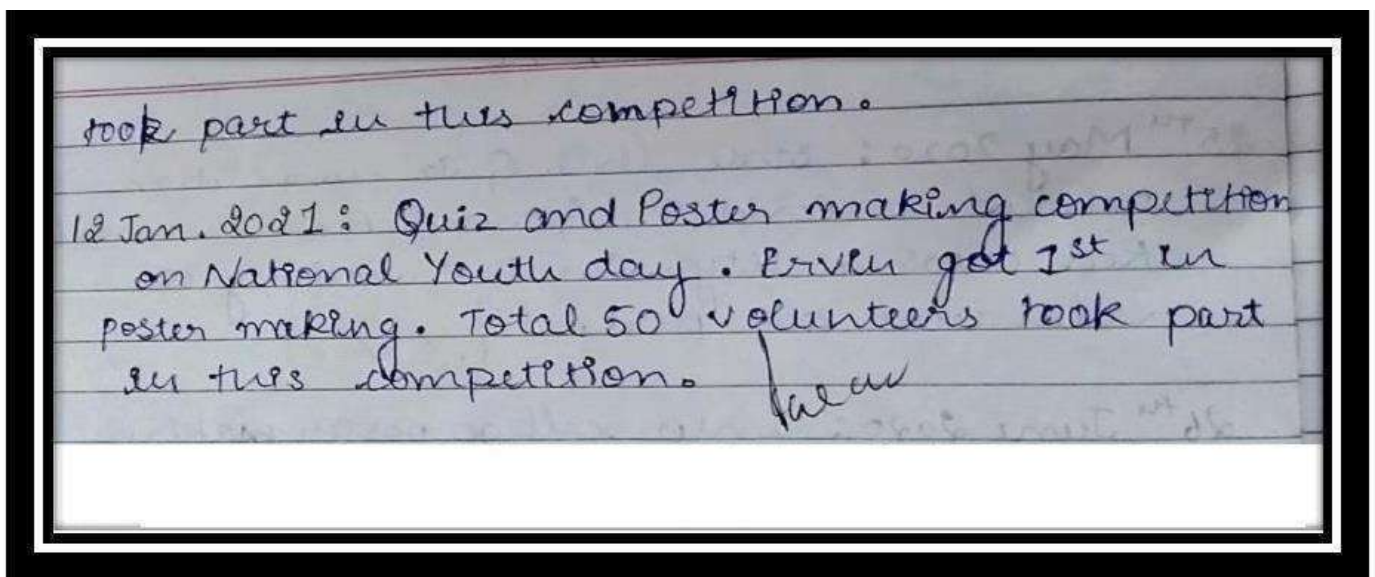 took part in this competition.
12 Jan. 2021: Quiz and Poster making competition
on National Youth day. got 1st in
poster making. Total 50 volunteers took part
in this competition.